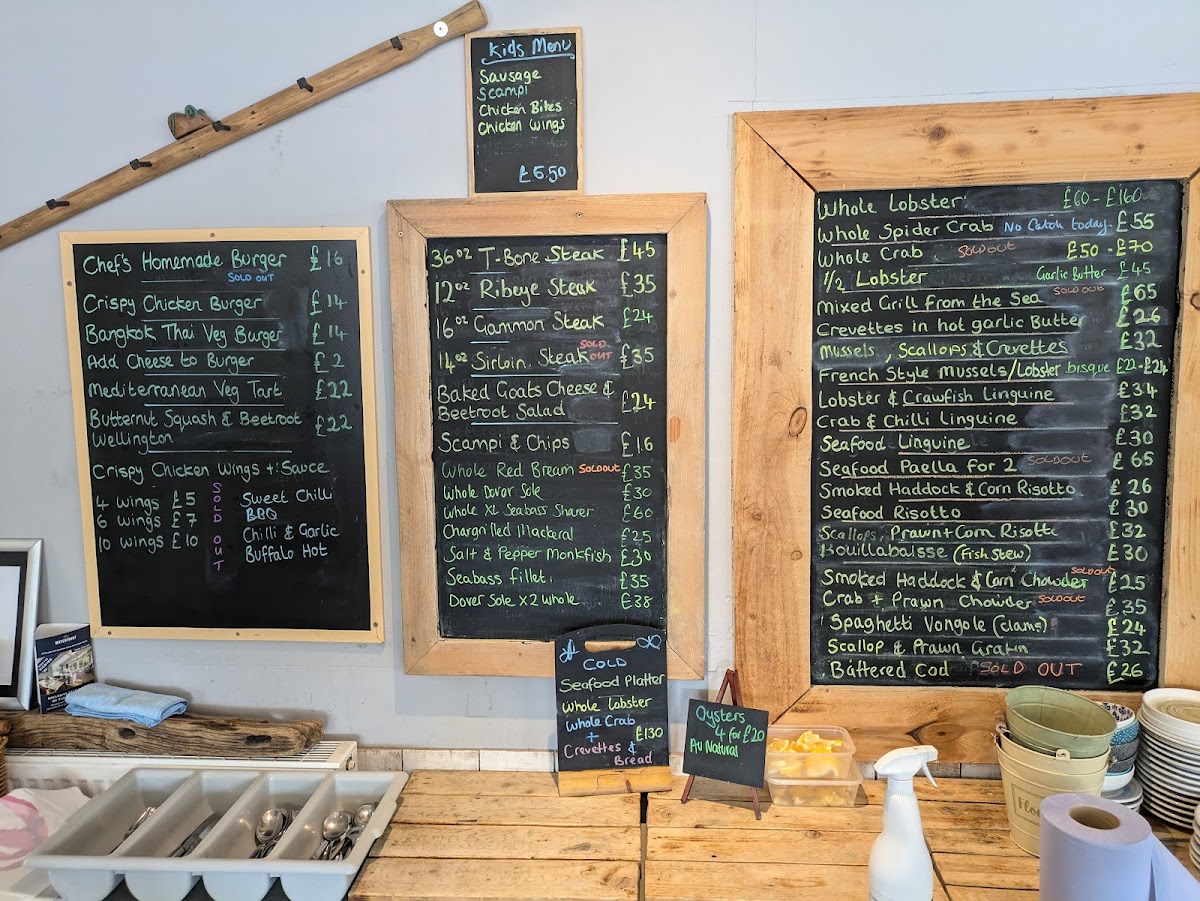 Kids Menu
Sausage
Scampi
Chicken Bites
Chicken Wings
£6.50
Chef's Homemade Burger £16
SOLD OUT
Crispy Chicken Burger £14
Bangkok Thai Veg Burger £14
Add Cheese to Burger £2
Mediterranean Veg Tart £22
Butternut Squash & Beetroot £22
Wellington
Crispy Chicken Wings + Sauce
4 Wings £5
6 Wings £7
10 Wings £10
SOLD OUT
Sweet Chilli
BBQ
Chilli & Garlic
Buffalo Hot
36oz T-Bone Steak £45
12oz Ribeye Steak £35
16oz Gammon Steak £24
14oz Sirloin Steak SOLD OUT £35
Baked Goats Cheese &
Beetroot Salad £24
Scampi & Chips £16
Whole Red Bream SOLD OUT £35
Whole Dover Sole £30
Whole XL Seabass Sharer £60
Chargrilled Mackeral £25
Salt & Pepper Monkfish £30
Seabass fillet £35
Dover Sole x2 whole £38
COLD
Seafood Platter
Whole Lobster
Whole Crab
+ £130
Crevettes &
Bread
Oysters
4 for £20
Au Natural
Whole Lobster £60 - £160
Whole Spider Crab No Catch today £55
Whole Crab SOLD OUT £50 - £70
1/2 Lobster Garlic Butter £45
Mixed Grill from the Sea SOLD OUT £65
Crevettes in hot garlic Butter £26
Mussels, Scallops & Crevettes £32
French Style Mussels/Lobster bisque £22-£24
Lobster & Crawfish Linguine £34
Crab & Chilli Linguine £32
Seafood Linguine £30
Seafood Paella for 2 SOLD OUT £65
Smoked Haddock & Corn Risotto £26
Seafood Risotto £30
Scallops, Prawn + Corn Risotto £32
Bouillabaisse (Fish Stew) £30
Smoked Haddock & Corn Chowder SOLD OUT £25
Crab + Prawn Chowder SOLD OUT £35
Spaghetti Vongole (clams) £24
Scallop & Prawn Gratin £32
Battered Cod SOLD OUT £26